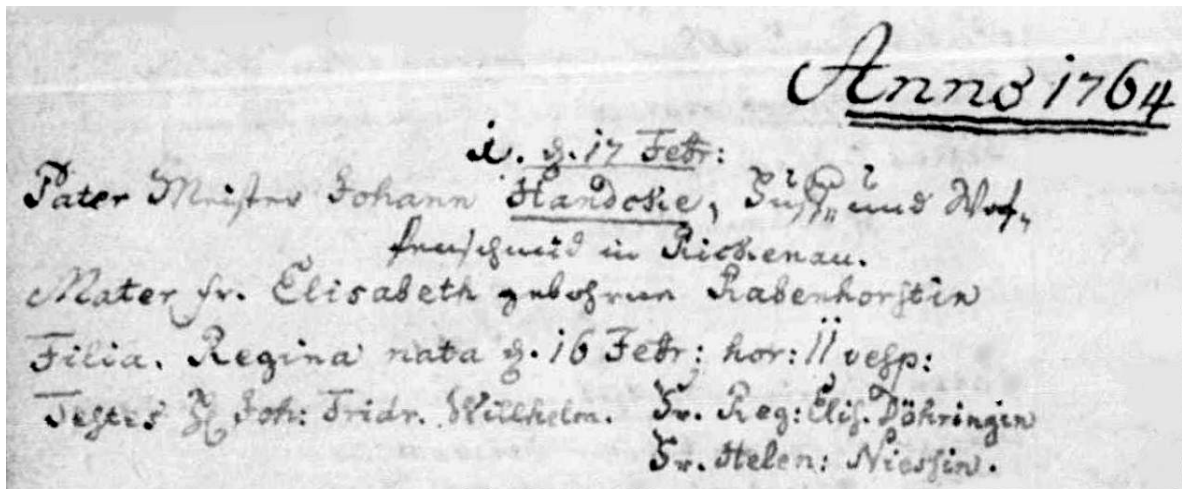 Anno 1764
1. d. 17 Febr:
Pater Meister Johann Handcke, Huff„ und Waf„
fenschmid in Richenau.
Mater fr. Elisabeth gebohrne Rabenhorstin
Filia. Regina nata d. 16 Febr: hor: 11 vesp:
Testes H Joh: Fridr. Willhelm. Fr. Reg: Elis. Döhringin
Fr. Helen: Niessin.